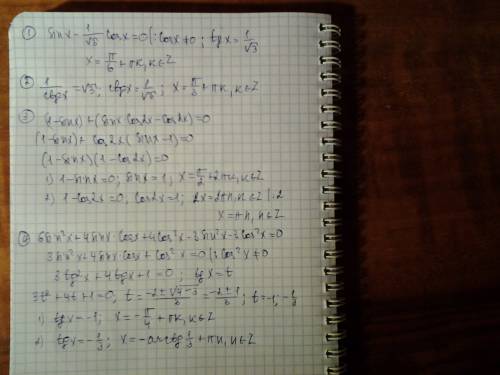 ① sinx - 1/√3 cosx = 0 |: cosx ≠ 0 ; tgx = 1/√3
x = π/6 + πk, k∈Z
② 1/ctgx = √3; ctgx = 1/√3 ; x = π/3 + πk, k∈Z
③ (1-sinx) + (sinx cos2x - cos2x) = 0
(1-sinx) + cos2x (sinx - 1) = 0
(1-sinx)(1-cos2x) = 0
1) 1-sinx = 0; sinx = 1; x = π/2 + 2πk, k∈Z
2) 1-cos2x = 0, cos2x = 1; 2x = 2πn, n∈Z |:2
x = πn, n∈Z
④ 6sin²x + 4sinx cosx + 4cos²x - 3sin²x - 3cos²x = 0
3sin²x + 4sinx cosx + cos²x = 0 |: cos²x ≠ 0
3tg²x + 4tgx + 1 = 0 ; tgx = t
3t² + 4t + 1 = 0; t = (-2 ± √4-3)/3 = (-2 ± 1)/3 ; t = -1; -1/3
1) tgx = -1; x = -π/4 + πk, k∈Z
2) tgx = -1/3; x = -arctg 1/3 + πn, n∈Z